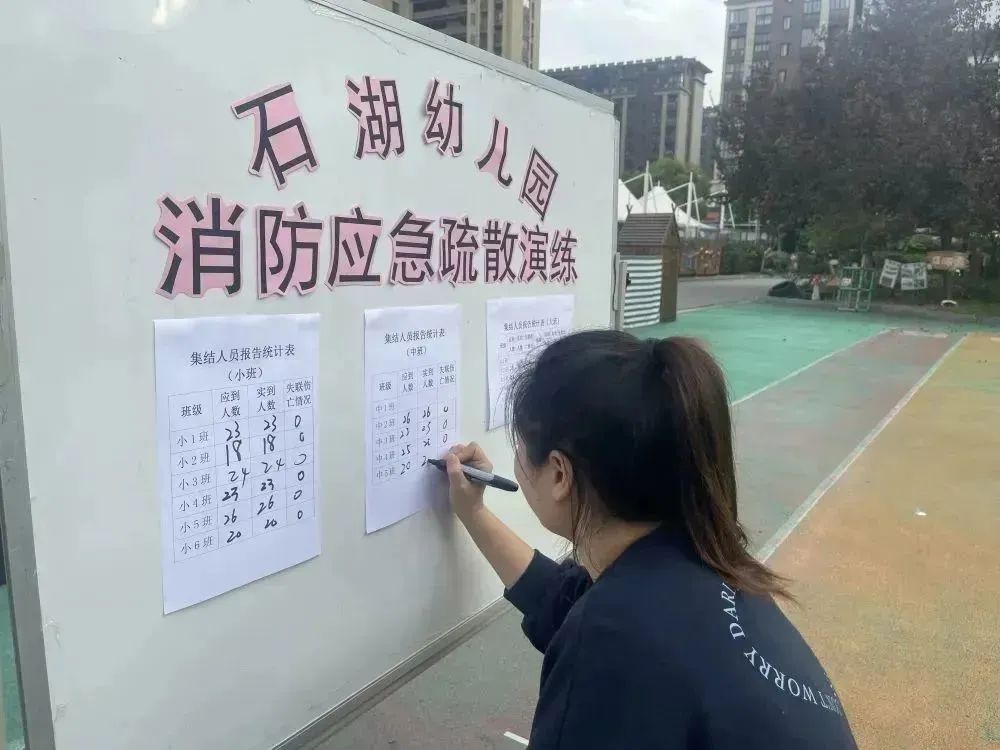 石湖幼儿园
消防应急疏散演练
集结人员报告统计表
（小班）
班级 应到人数 实到人数 失联伤亡情况
小1班 23 23 0
小2班 18 18 0
小3班 24 24 0
小4班 23 23 0
小5班 26 26 0
小6班 20 20 0
集结人员报告统计表
（中班）
班级 应到人数 实到人数 失联伤亡情况
中1班
中2班 26 26 0
中3班 23 23 0
中4班 25 0
中5班 20
集结人员报告统计表（大班）
WORRY